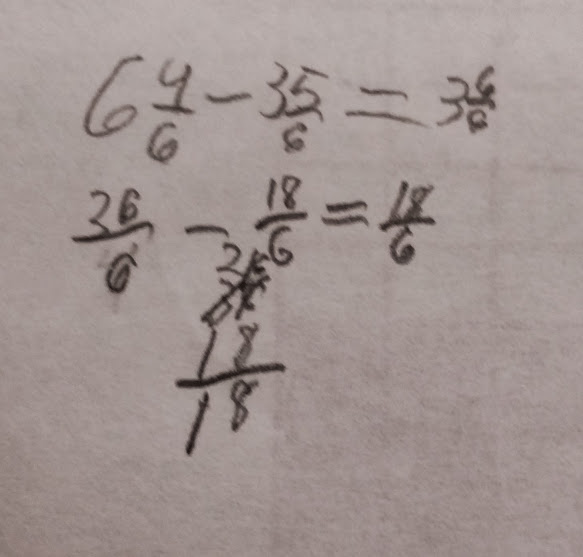 6 4/6 - 3 5/6 = 3 6/6
36/6 - 18/6 = 18/6
18
18